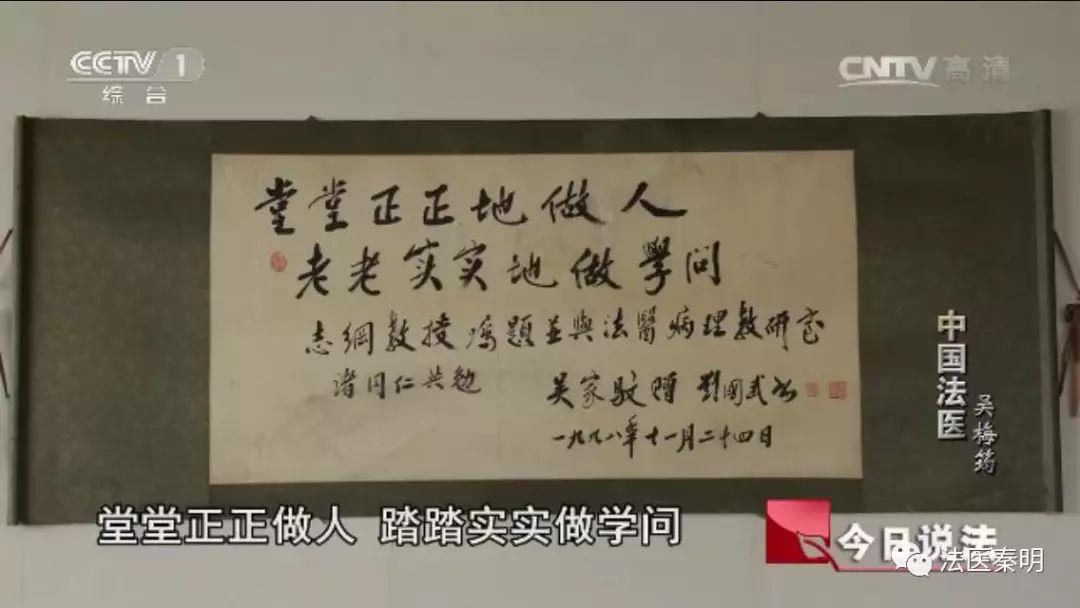 CCTV 1
综合
CNTV高清
堂堂正正地做人
老老实实地做學问
志綱教授嘱題並與法醫病理教研室
諸同仁共勉
吴家駁贈 劉國武书
一九九八年十一月二十四日
中国法医
吴梅筠
堂堂正正做人 踏踏实实做学问
今日说法
法医秦明